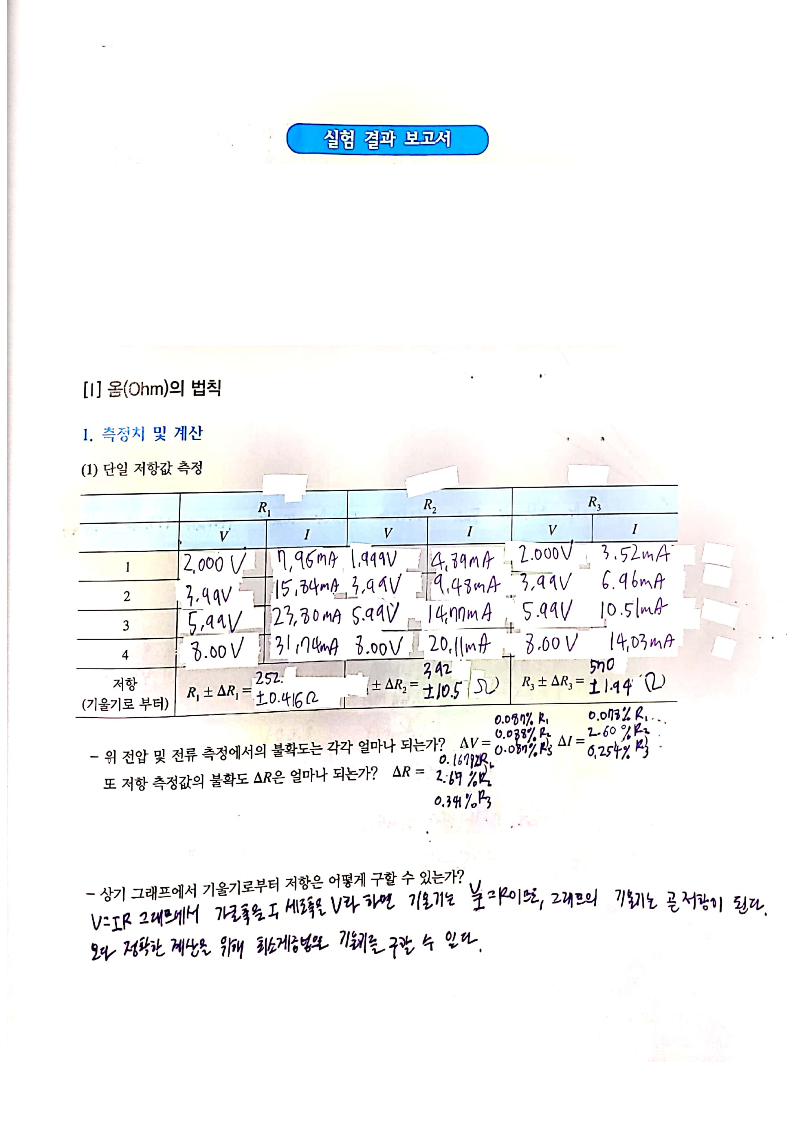 실험 결과 보고서
[I] 옴(Ohm)의 법칙
1. 측정치 및 계산
(1) 단일 저항값 측정
R₁ R₂ R₃
V I V I V I
1 2,000 V 7,96mA 1,999V 4,89mA 2.000V 3.52mA
2 3,99V 15,84mA 3,99V 9,48mA 3,99V 6.96mA
3 5,99V 23,80mA 5.99V 14,77mA 5.99V 10.51mA
4 8.00V 31,74mA 8.00V 20,11mA 8.00V 14,03mA
저항 (기울기로 부터) R₁ ± ΔR₁ = 252. ±0.416Ω ± ΔR₂ = 392 ±10.5 (Ω) R₃ ± ΔR₃ = 570 ±1.94 (Ω)
– 위 전압 및 전류 측정에서의 불확도는 각각 얼마나 되는가? ΔV = 0.087% R₁ 0.088% R₂ 0.087% R₃ ΔI = 0.073% R₁ 2.60% R₂ 0.254% R₃
또 저항 측정값의 불확도 ΔR은 얼마나 되는가? ΔR = 2.67% R₂ 0.341% R₃
– 상기 그래프에서 기울기로부터 저항은 어떻게 구할 수 있는가?
V=IR 그래프에서 가로축을 I 세로축을 V라 하면 기울기는 V/I=R이므로, 그래프의 기울기는 곧 저항이 된다.
보다 정확한 계산을 위해 최소제곱법으로 기울기를 구할 수 있다.